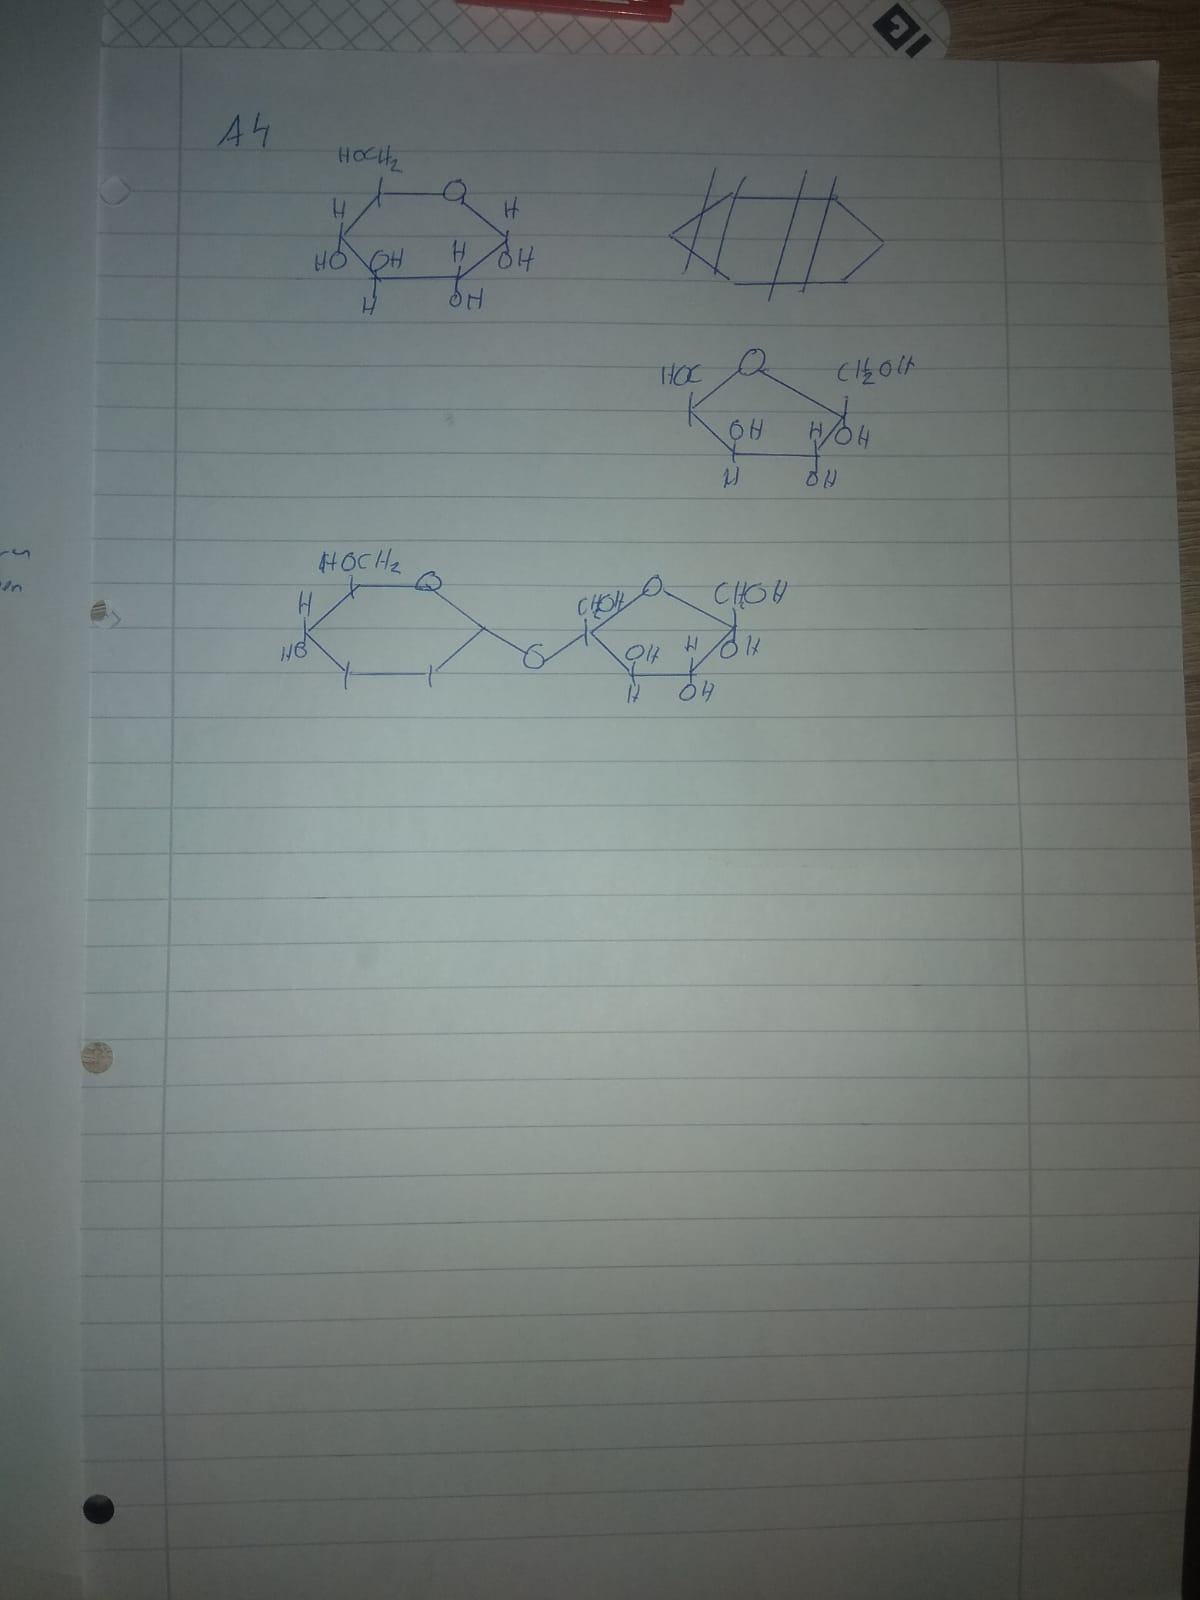 A4
HOCH2
O
H H
HO OH H OH
H OH
O
HOC CH2OH
OH H OH
H OH
HOCH2 O O CHOH
H CH2OH
HO OH H OH
O
H OH